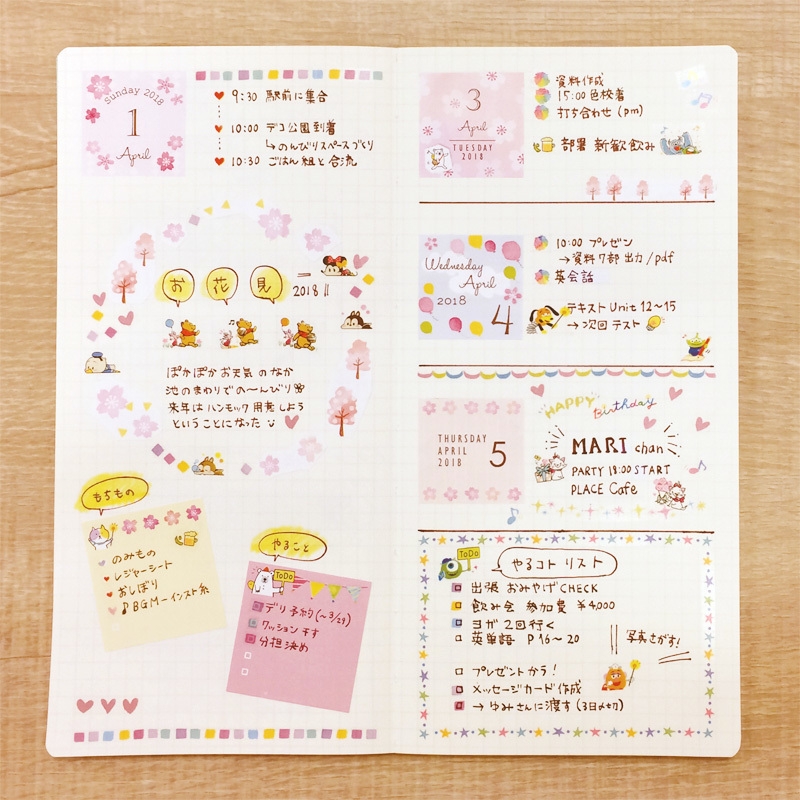 Sunday 2018
1
April
9:30 駅前に集合
10:00 デコ公園到着
↳のんびりスペースづくり
10:30 ごはん組と合流
お花見 2018!!
ぽかぽかお天気のなか
池のまわりでの〜んびり
来年はハンモック用意しよう
ということになった
もちもの
のみもの
レジャーシート
おしぼり
♪BGM−インスト系
やること
ToDo
デリ予約(〜3/29)
クッション干す
分担決め
3
April
TUESDAY
2018
資料作成
15:00 色校着
打ち合わせ(pm)
部署 新歓飲み
Wednesday
April
2018
4
10:00 プレゼン
→資料7部 出力/pdf
英会話
テキスト Unit 12〜15
→次回 テスト
THURSDAY
APRIL
2018
5
HAPPY Birthday
MARI chan
PARTY 18:00 START
PLACE Cafe
ToDo
やるコト リスト
出張 おみやげ CHECK
飲み会 参加費 ¥4,000
ヨガ 2回行く
英単語 P16〜20
写真さがす!
プレゼントかう!
メッセージカード作成
→ゆみさんに渡す(3日〆切)